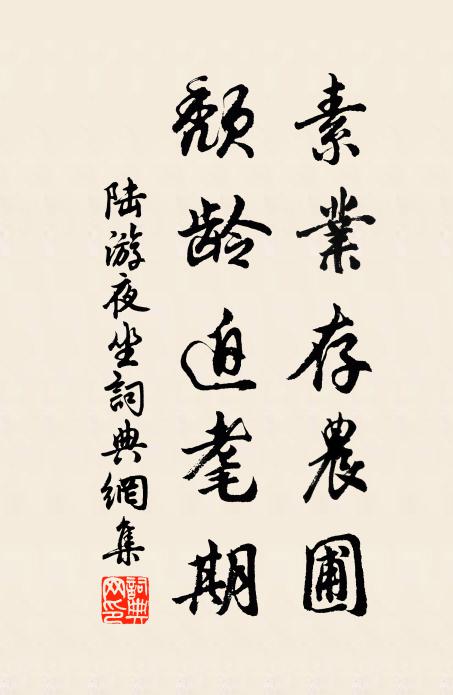 素業存農圃
頹齡迫耄期
陸游夜坐詞典網集
詞典網印